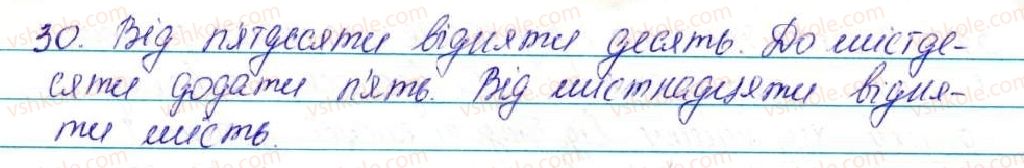 30. Від п'ятдесяти відняти десять. До шістде-
сяти додати п'ять. Від шістнадцяти відня-
ти шість.